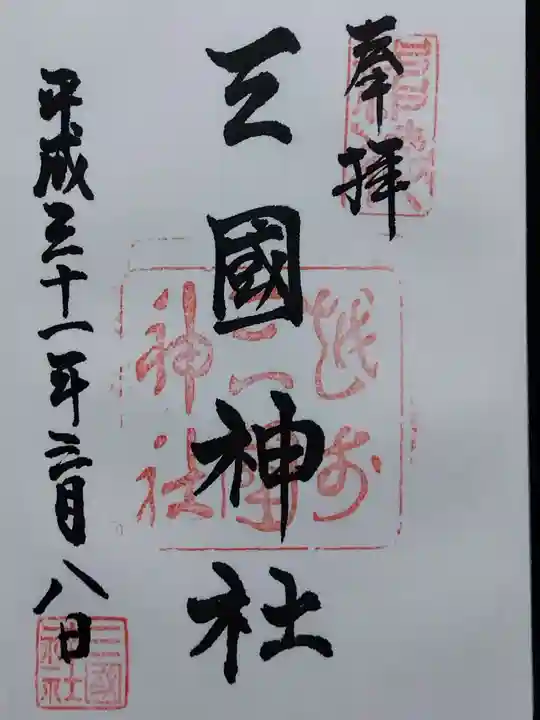 奉拝
三國神社
越前
三國
神社
平成三十一年三月八日
三國
神社